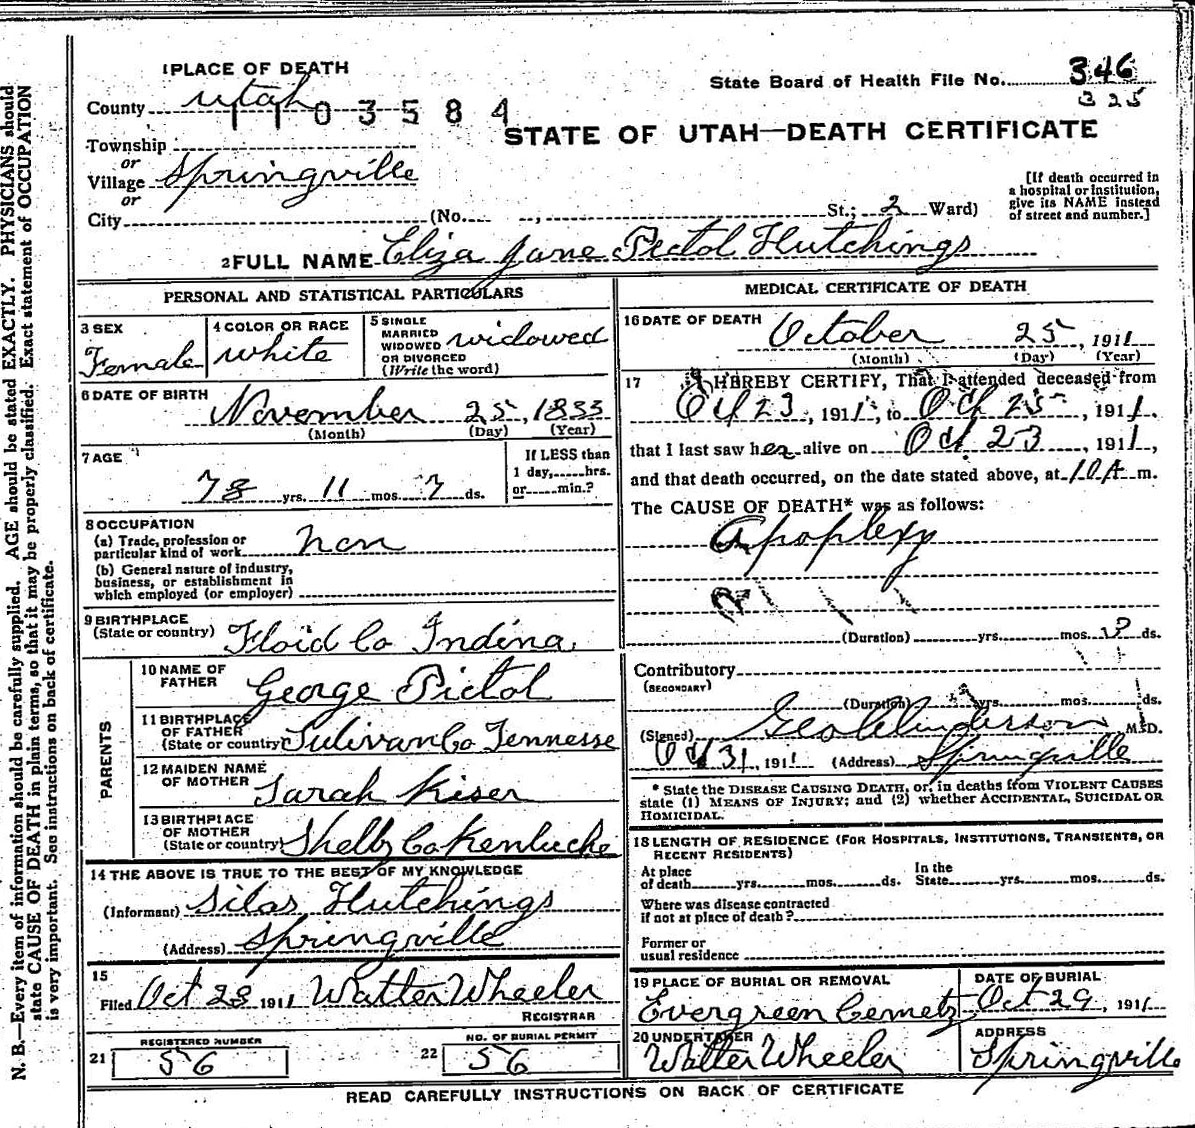 1 PLACE OF DEATH
State Board of Health File No. 346
325
County Utah
1103584
STATE OF UTAH—DEATH CERTIFICATE
Township
or
Village Springville
or
City (No. , St.; 2 Ward)
[If death occurred in
a hospital or institution,
give its NAME instead
of street and number.]
2 FULL NAME Eliza Jane Pectol Hutchings
PERSONAL AND STATISTICAL PARTICULARS
3 SEX
Female
4 COLOR OR RACE
white
5 SINGLE
MARRIED
WIDOWED
OR DIVORCED
(Write the word)
widowed
6 DATE OF BIRTH
November 25, 1833
(Month) (Day) (Year)
7 AGE
78 yrs. 11 mos. 7 ds.
If LESS than
1 day,......hrs.
or......min.?
8 OCCUPATION
(a) Trade, profession or
particular kind of work non
(b) General nature of industry,
business, or establishment in
which employed (or employer)
9 BIRTHPLACE
(State or country) Floid Co Indina
PARENTS
10 NAME OF
FATHER George Pictol
11 BIRTHPLACE
OF FATHER
(State or country) Sulivan Co Tennesse
12 MAIDEN NAME
OF MOTHER Sarah Kiser
13 BIRTHPLACE
OF MOTHER
(State or country) Shelby Co Kentucke
14 THE ABOVE IS TRUE TO THE BEST OF MY KNOWLEDGE
(Informant) Silas Hutchings
(Address) Springville
15
Filed Oct 28 1911 Walter Wheeler
REGISTRAR
21 REGISTERED NUMBER
56
22 NO. OF BURIAL PERMIT
56
MEDICAL CERTIFICATE OF DEATH
16 DATE OF DEATH October 25, 1911
(Month) (Day) (Year)
17 I HEREBY CERTIFY, That I attended deceased from
Oct 23, 1911, to Oct 25, 1911,
that I last saw her alive on Oct. 23, 1911,
and that death occurred, on the date stated above, at 10 A m.
The CAUSE OF DEATH* was as follows:
Apoplexy
(Duration) yrs. mos. ds.
Contributory
(SECONDARY)
(Duration) yrs. mos. ds.
(Signed) Geo Anderson M.D.
Oct 31, 1911 (Address) Springville
* State the DISEASE CAUSING DEATH, or, in deaths from VIOLENT CAUSES
state (1) MEANS OF INJURY; and (2) whether ACCIDENTAL, SUICIDAL OR
HOMICIDAL.
18 LENGTH OF RESIDENCE (FOR HOSPITALS, INSTITUTIONS, TRANSIENTS, OR
RECENT RESIDENTS)
At place
of death yrs. mos. ds.
In the
State yrs. mos. ds.
Where was disease contracted
if not at place of death?
Former or
usual residence
19 PLACE OF BURIAL OR REMOVAL
Evergreen Cemetry
DATE OF BURIAL
Oct 29, 1911
20 UNDERTAKER
Walter Wheeler
ADDRESS
Springville
READ CAREFULLY INSTRUCTIONS ON BACK OF CERTIFICATE
N. B.—Every item of information should be carefully supplied. AGE should be stated EXACTLY. PHYSICIANS should
state CAUSE OF DEATH in plain terms, so that it may be properly classified. Exact statement of OCCUPATION
is very important. See instructions on back of certificate.